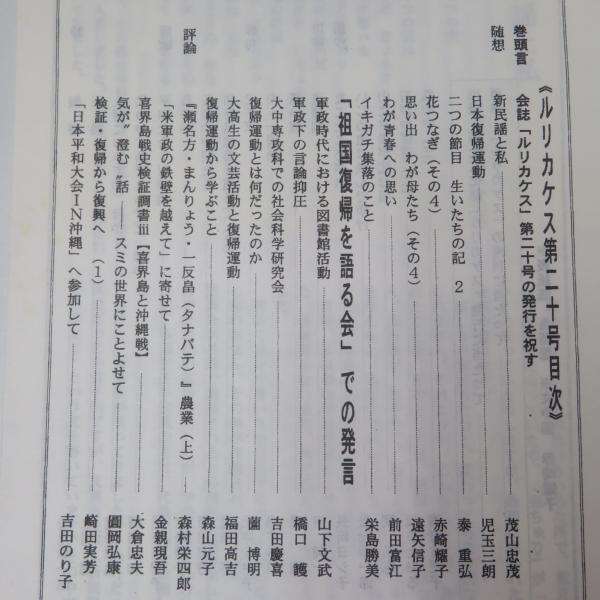 《ルリカケス第二十号目次》
巻頭言 会誌「ルリカケス」第二十号の発行を祝す 茂山忠茂
随想 新民謡と私 児玉三朗
日本復帰運動 泰重弘
二つの節目 生いたちの記 2 赤崎耀子
花つなぎ(その4) 遠矢信子
思い出 わが母たち(その4) 前田富江
わが青春への思い 栄島勝美
イキガチ集落のこと
「祖国復帰を語る会」での発言
軍政時代における図書館活動 山下文武
軍政下の言論抑圧 橋口護
大中専攻科での社会科学研究会 吉田慶喜
復帰運動とは何だったのか 薗博明
大高生の文芸活動と復帰運動 福田高吉
復帰運動から学ぶこと 森山元子
評論 『瀬名方・まんりょう・一反畠(タナバテ)』農業(上) 森村栄四郎
「米軍政の鉄壁を越えて」に寄せて 金親現吾
喜界島戦史検証調書ⅲ【喜界島と沖縄戦】 大倉忠夫
気が〝澄む〟話――スミの世界にことよせて 圓岡弘康
検証・復帰から復興へ(1) 崎田実芳
「日本平和大会IN沖縄」へ参加して 吉田のり子